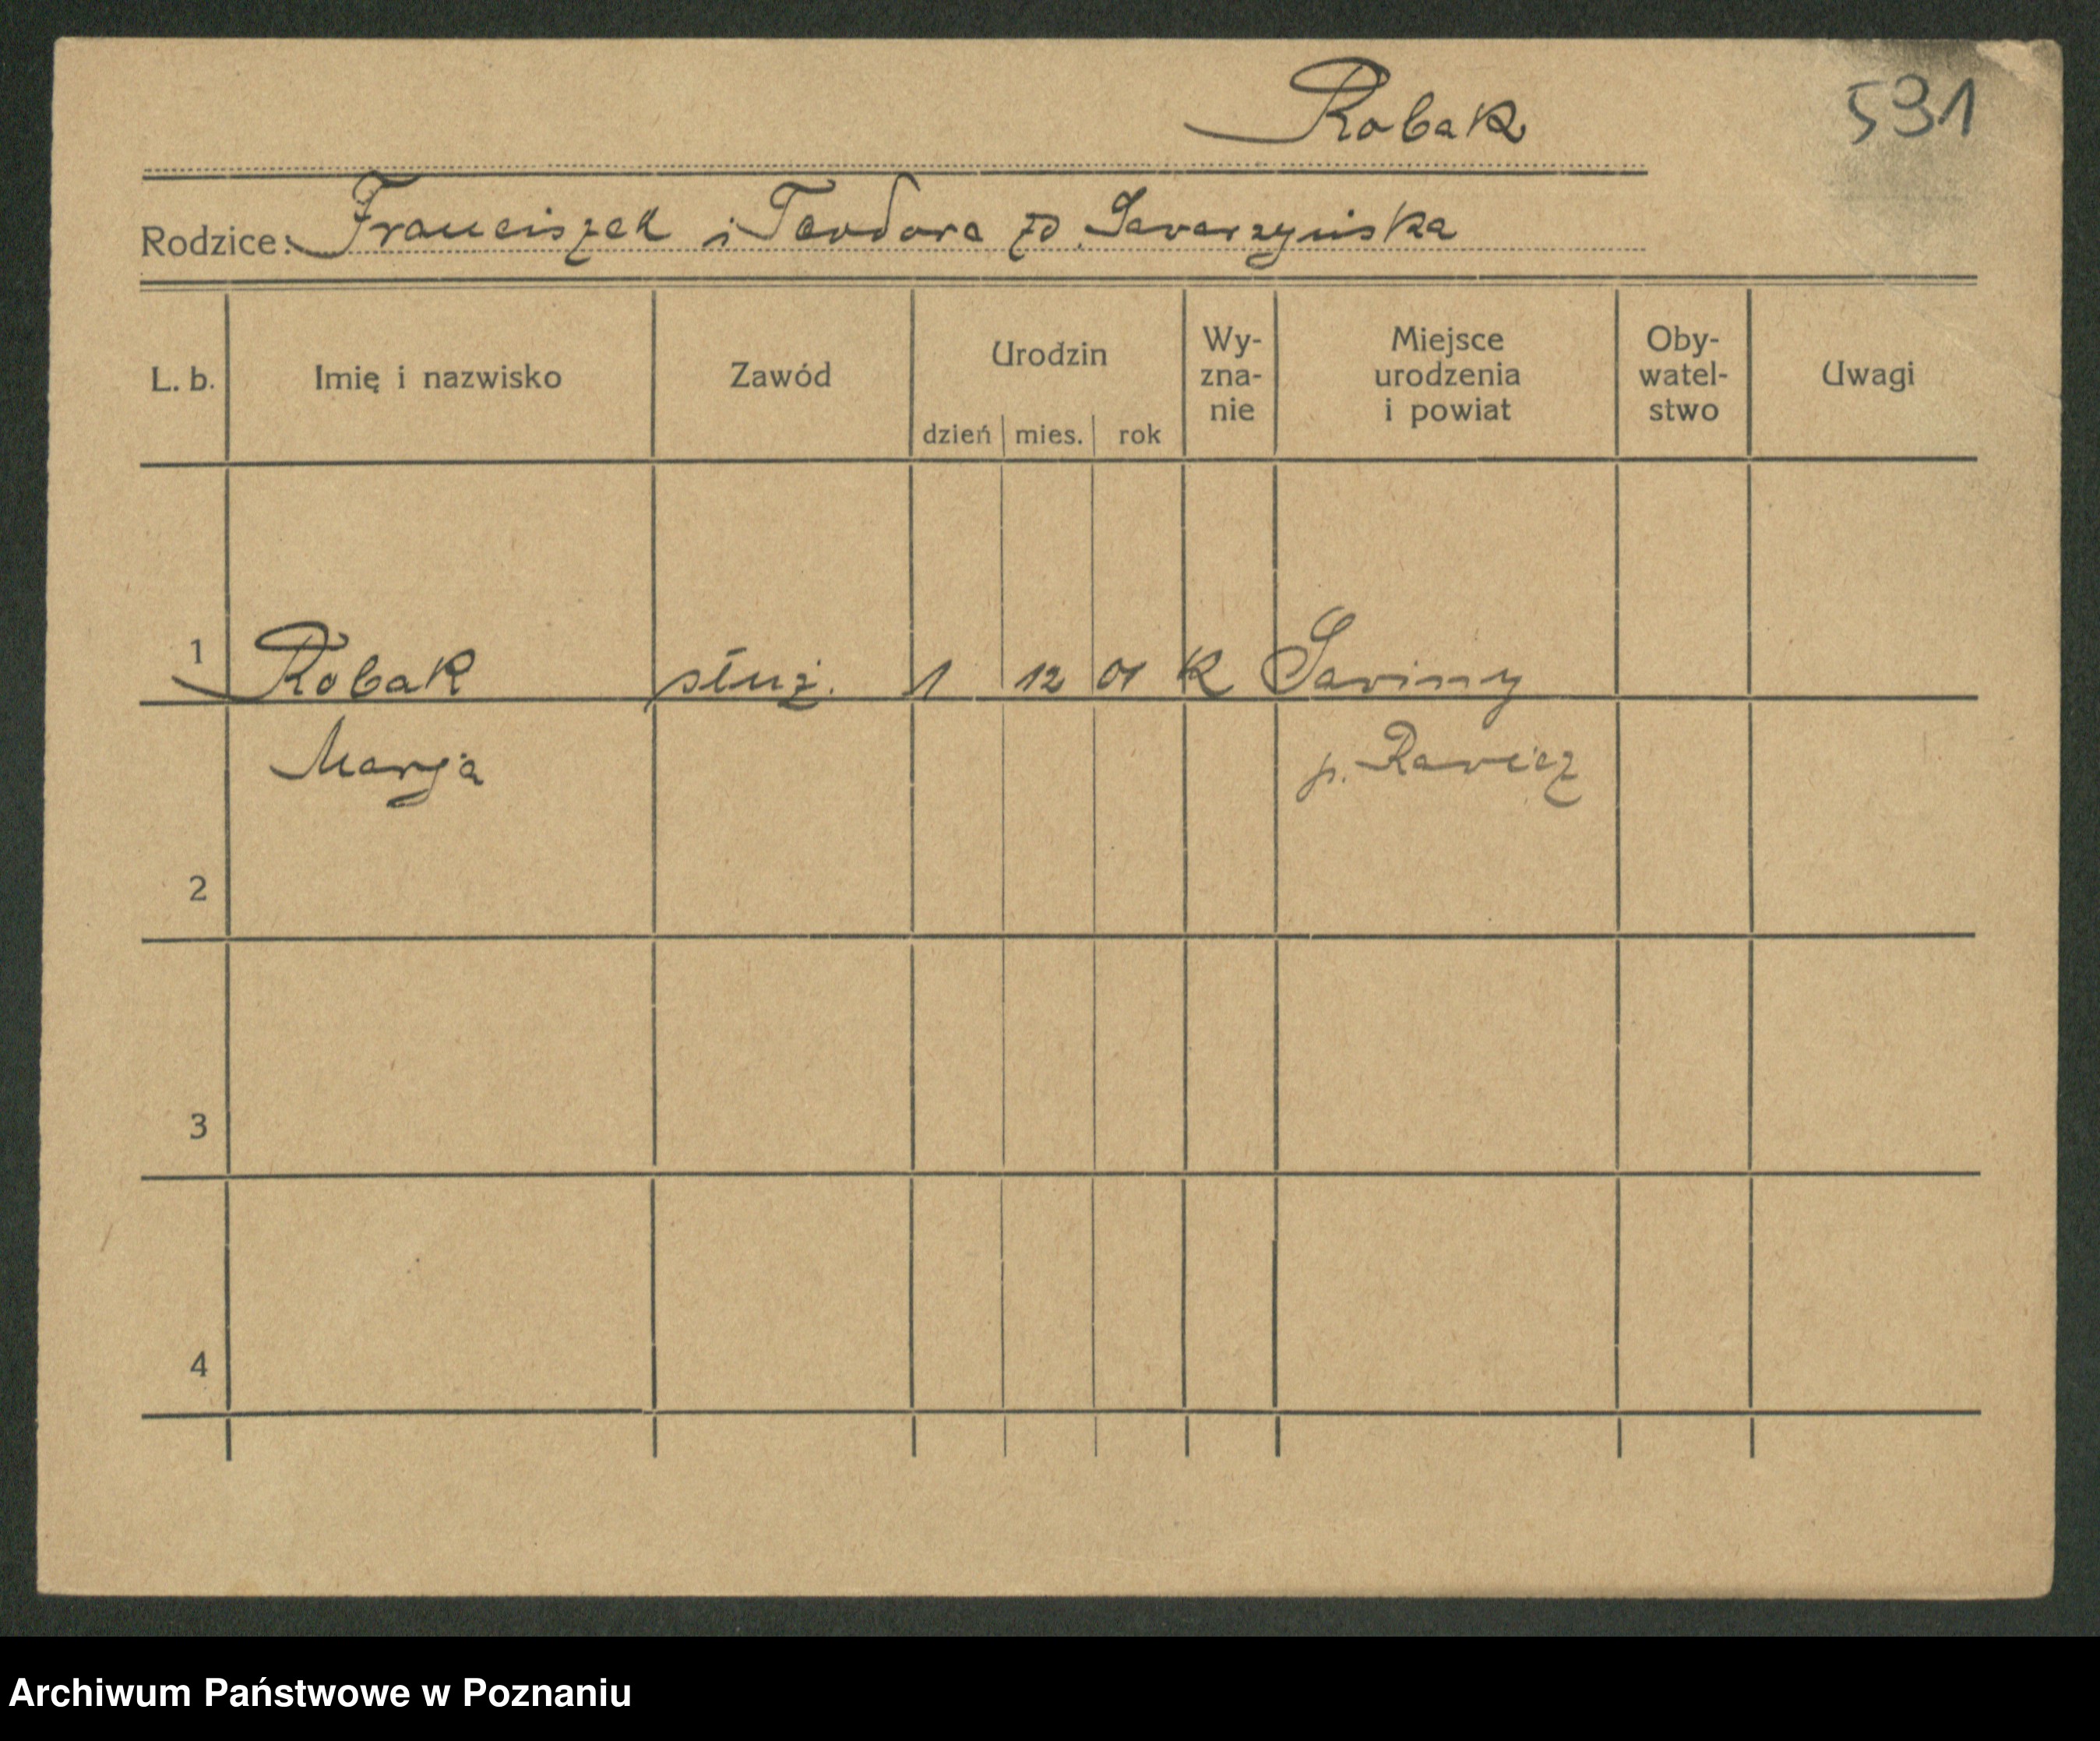 Robak
591
Rodzice: Franciszek i Teodora zd.
L. b. Imię i nazwisko Zawód Urodzin dzień mies. rok Wy-zna-nie Miejsce urodzenia i powiat Oby-watel-stwo Uwagi
1 Robak służ. 1 12 01 K
Marja p. Rawicz
2
3
4
Archiwum Państwowe w Poznaniu